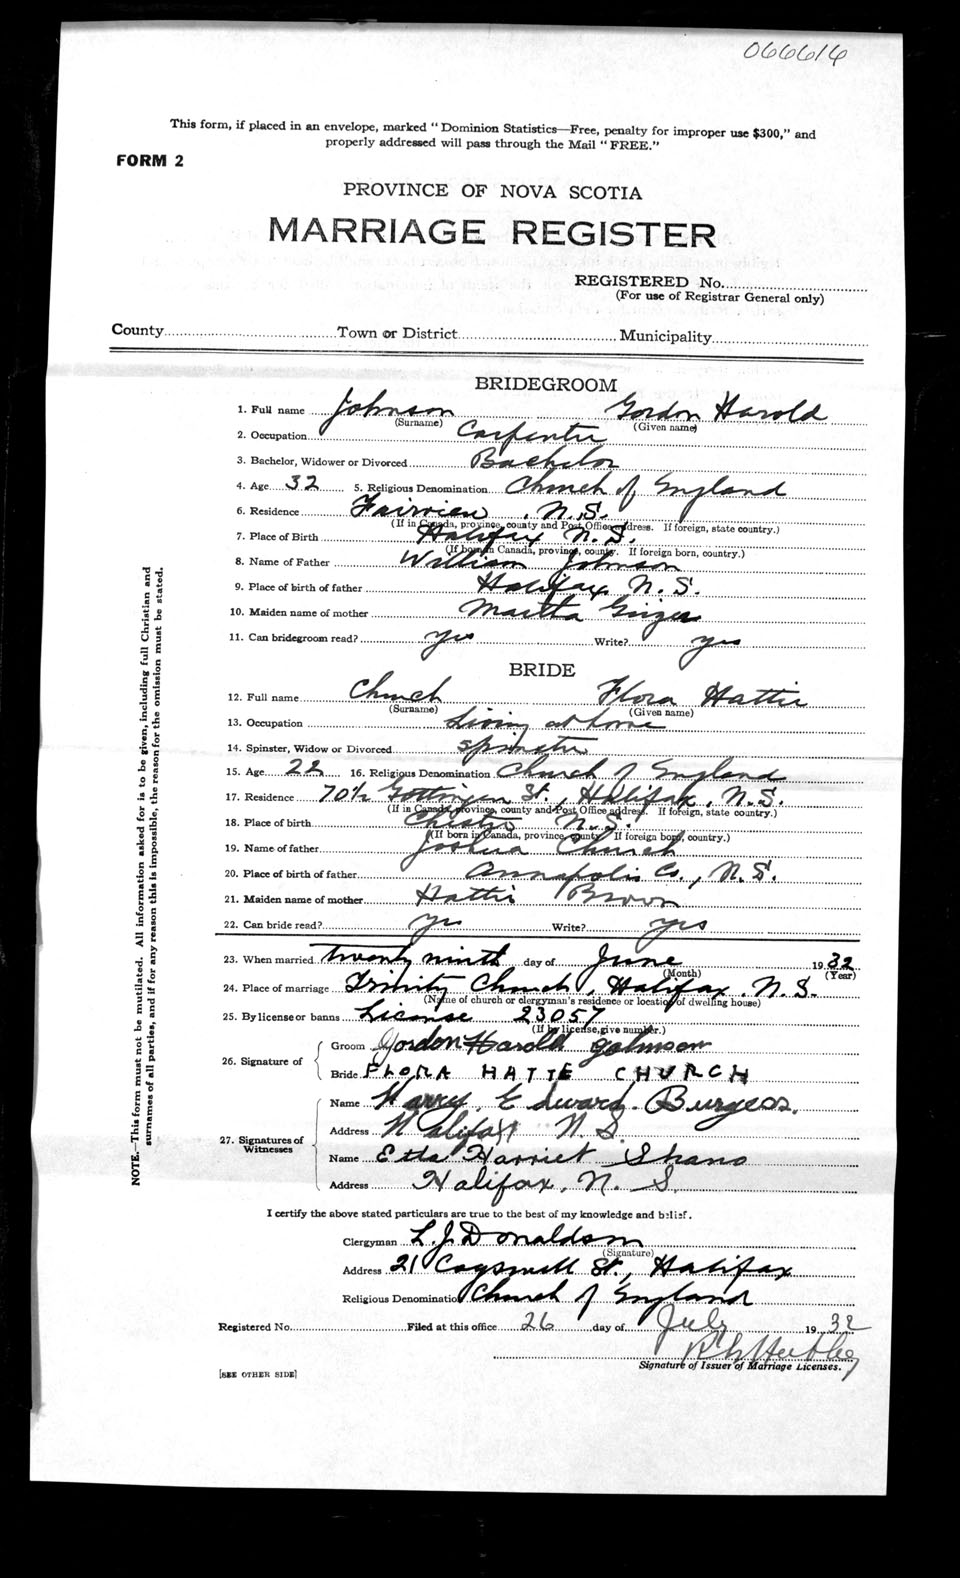 066616
This form, if placed in an envelope, marked "Dominion Statistics—Free, penalty for improper use $300," and
properly addressed will pass through the Mail "FREE."
FORM 2
PROVINCE OF NOVA SCOTIA
MARRIAGE REGISTER
REGISTERED No.
(For use of Registrar General only)
County Town or District Municipality
BRIDEGROOM
1. Full name Johnson Gordon Harold
(Surname) (Given name)
2. Occupation Carpenter
3. Bachelor, Widower or Divorced Bachelor
4. Age 32 5. Religious Denomination Church of England
6. Residence Fairview, N.S.
(If in Canada, province, county and Post Office address. If foreign, state country.)
7. Place of Birth Halifax N.S.
(If born in Canada, province, county. If foreign born, country.)
8. Name of Father William Johnson
9. Place of birth of father Halifax, N.S.
10. Maiden name of mother Martha
11. Can bridegroom read? yes Write? yes
BRIDE
12. Full name Church Flora Hattie
(Surname) (Given name)
13. Occupation Living at home
14. Spinster, Widow or Divorced Spinster
15. Age 22 16. Religious Denomination Church of England
17. Residence 70½ Gottingen St., Halifax, N.S.
(If in Canada, province, county and Post Office address. If foreign, state country.)
18. Place of birth Chester N.S.
(If born in Canada, province, county. If foreign born, country.)
19. Name of father Joshua Church
20. Place of birth of father Annapolis Co., N.S.
21. Maiden name of mother Hattie Brown
22. Can bride read? yes Write? yes
23. When married twenty ninth day of June 1932
(Month) (Year)
24. Place of marriage Trinity Church, Halifax, N.S.
(Name of church or clergyman's residence or location of dwelling house)
25. By license or banns License 23057
(If by license, give number.)
26. Signature of
Groom Gordon Harold Johnson
Bride FLORA HATTE CHURCH
27. Signatures of Witnesses
Name Harry Edward Burgess.
Address Halifax N.S.
Name Etta Harriet Shano
Address Halifax, N.S.
I certify the above stated particulars are true to the best of my knowledge and belief.
Clergyman L.J. Donaldson
(Signature)
Address 21 Cogswell St., Halifax
Religious Denomination Church of England
Registered No. Filed at this office 26 day of July 1932
Signature of Issuer of Marriage Licenses.
[SEE OTHER SIDE]
NOTE.—This form must not be mutilated. All information asked for is to be given, including full Christian and
surnames of all parties, and if for any reason this is impossible, the reason for the omission must be stated.